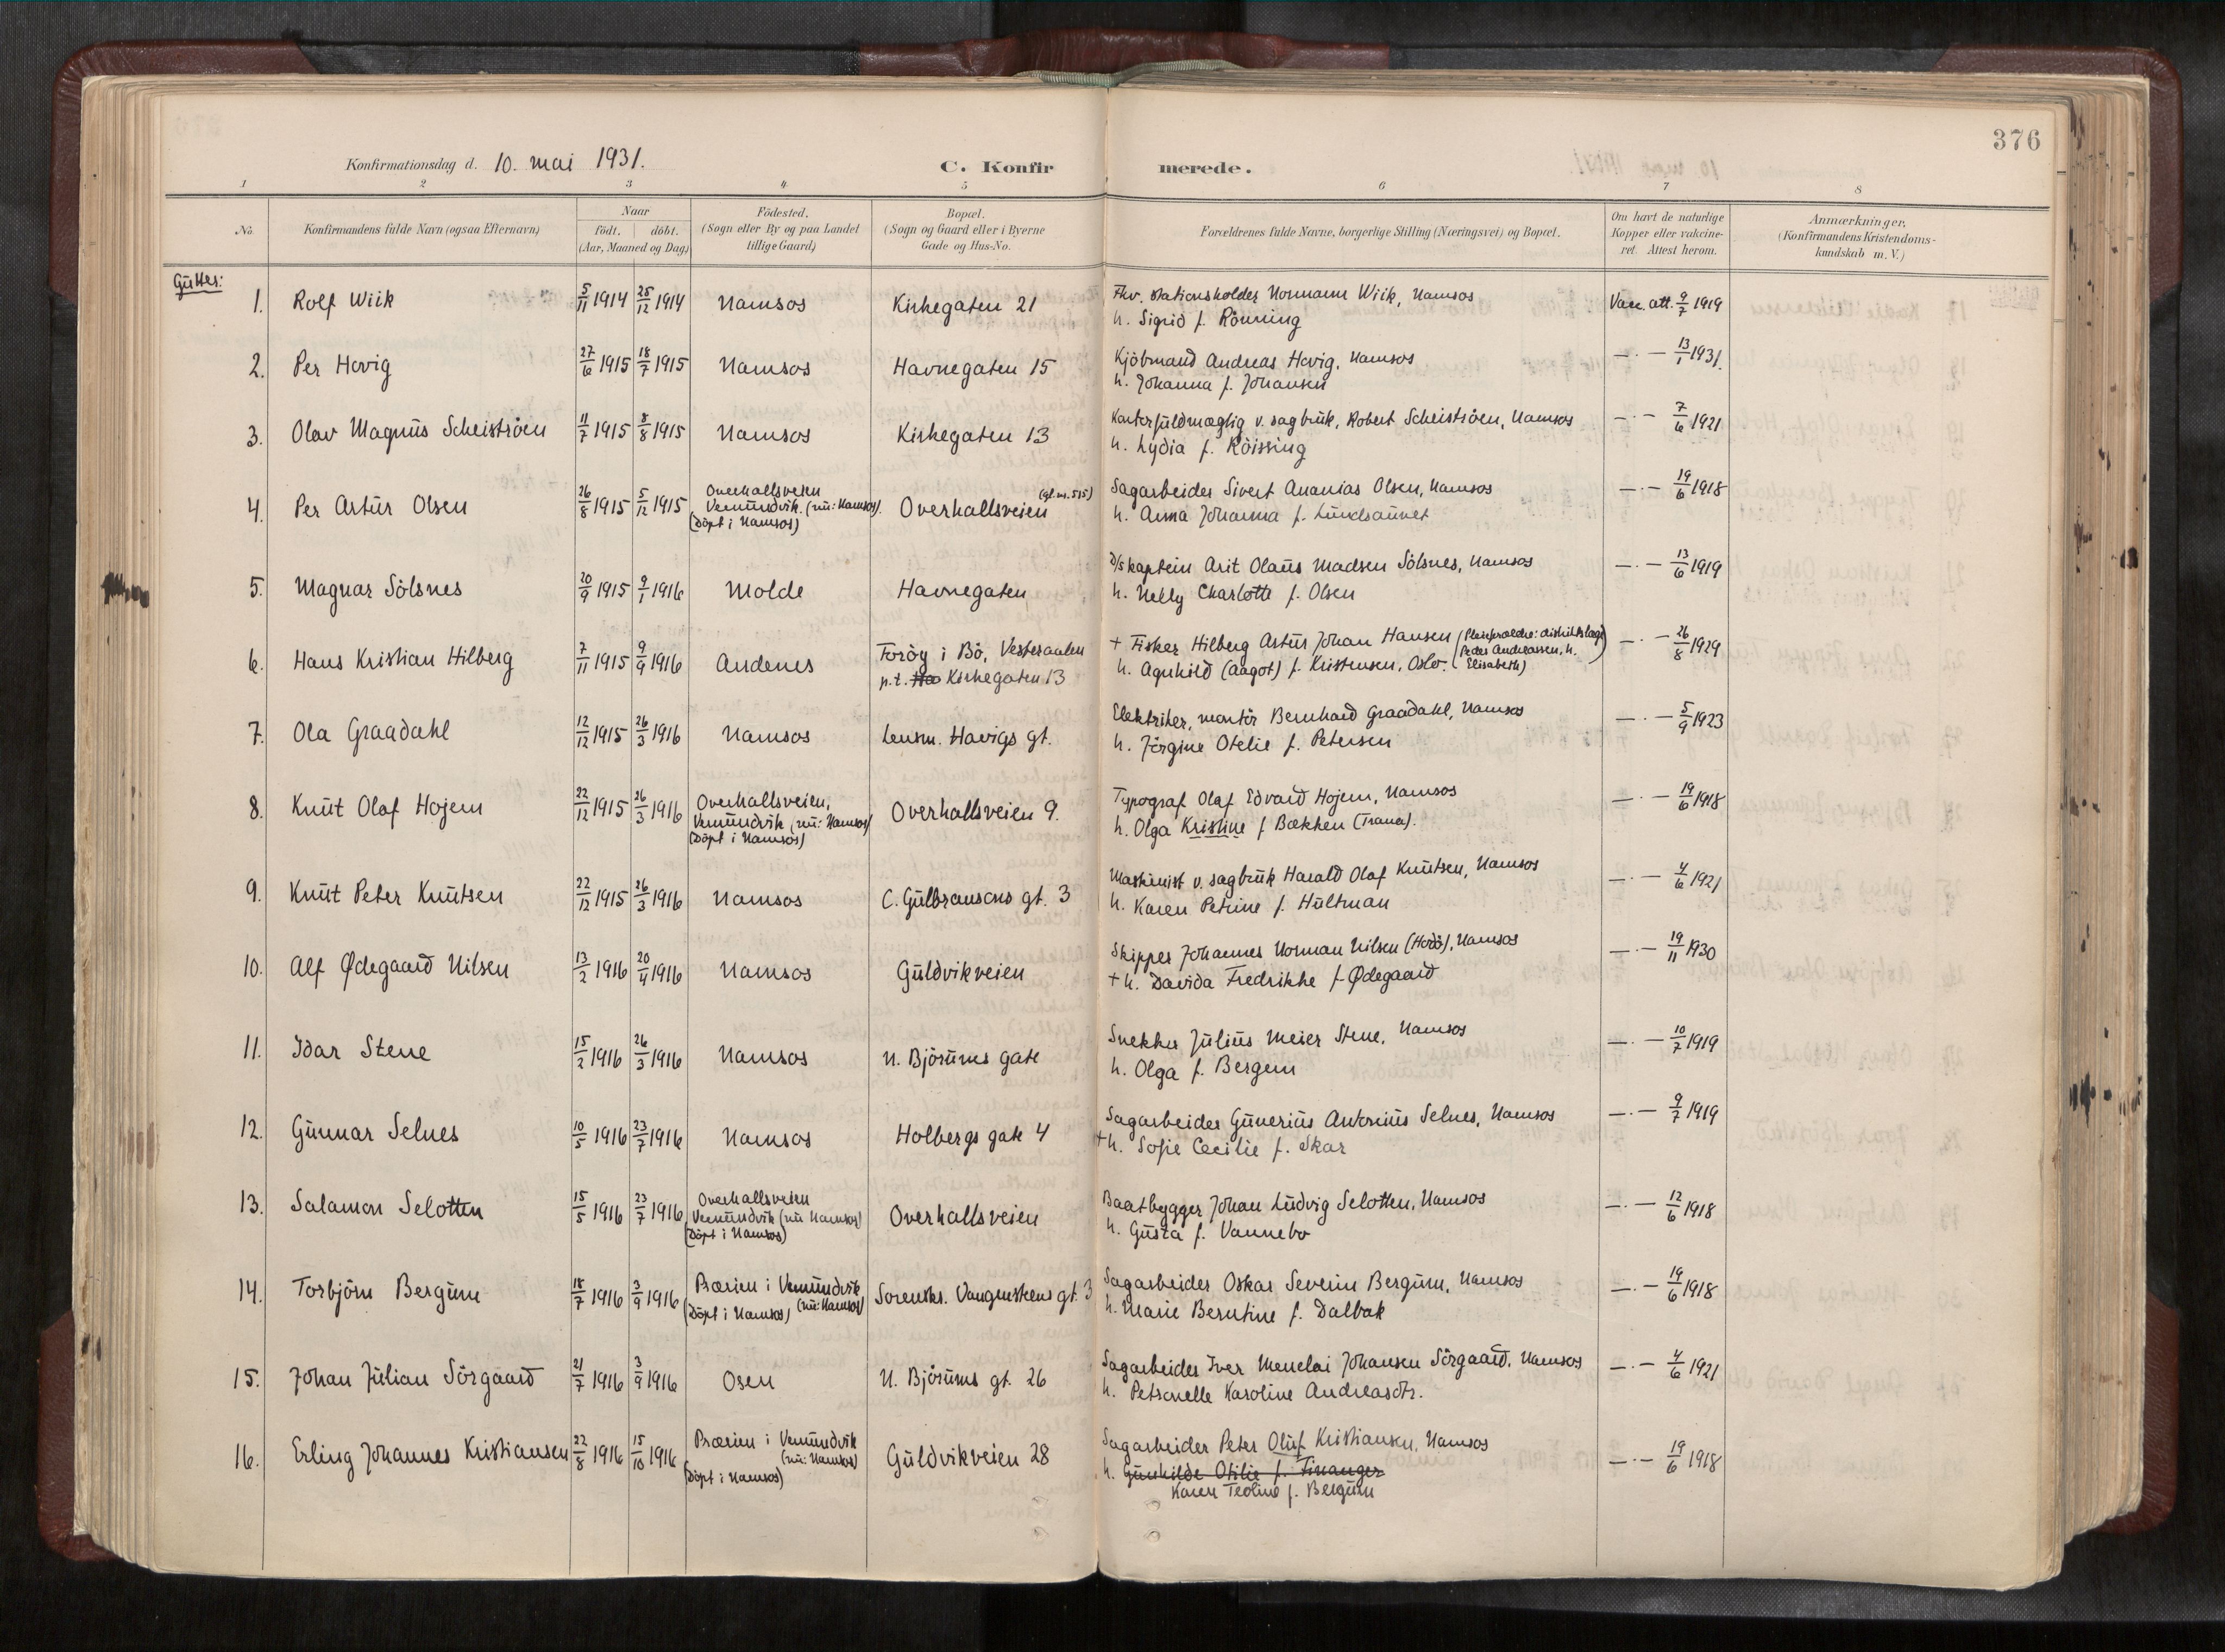 376
Konfirmationsdag d. 10. mai 1931.
C. Konfirmerede.
1 2 3 4 5 6 7 8
No. Konfirmandens fulde Navn (ogsaa Efternavn) Naar födt. döbt. (Aar, Maaned og Dag) Födested. (Sogn eller By og paa Landet tillige Gaard) Bopæl. (Sogn og Gaard eller i Byerne Gade og Hus-No. Forældrenes fulde Navne, borgerlige Stilling (Næringsvei) og Bopæl. Om havt de naturlige Kopper eller vakcineret. Attest herom. Anmærkninger. (Konfirmandens Kristendomskundskab m. V.)
Gutter:
1. Rolf Wiik 5/11 1914 25/12 1914 Namsos Kirkegaten 21 Fhv. stationsholder Normann Wiik, Namsos Vacc. att. 9/7 1919
h. Sigrid f. Rönning
2. Per Hovig 27/6 1915 18/7 1915 Namsos Havnegaten 15 Kjöbmand Andreas Hovig, Namsos —·— 13/1 1931.
h. Johanna f. Johansen
3. Olav Magnus Scheiströen 11/7 1915 8/8 1915 Namsos Kirkegaten 13 Kontorfuldmægtig v. sagbruk, Robert Scheiströen, Namsos —·— 7/6 1921
h. Lydia f. Röissing
4. Per Artur Olsen 26/8 1915 5/12 1915 Overhallsveien Vemundvik. (nu: Namsos). (Döpt i Namsos) Overhallsveien (gl. nr. 515) Sagarbeider Sivert Ananias Olsen, Namsos —·— 19/6 1918
h. Anna Johanna f. Lundsaunet
5. Magnar Sölsnes 20/9 1915 9/1 1916 Molde Havnegaten D/s kaptein Arit Olaus Madsen Sölsnes, Namsos —·— 13/6 1919
h. Nelly Charlotte f. Olsen
6. Hans Kristian Hilberg 7/11 1915 9/9 1916 Andenes Foröy i Bö, Vesteraalen p.t. Kirkegaten 13 + Fisker Hilberg Artur Johan Hansen (Pleieforældre: distriktslæge Peder Andreassen, h. Elisabeth) —·— 26/8 1929
h. Agnhild (Aagot) f. Kristensen, Oslo.
7. Ola Graadahl 12/12 1915 26/3 1916 Namsos Lensm. Havigs gt. Elektriker, montör Bernhard Graadahl, Namsos —·— 5/9 1923
h. Jörgine Otelie f. Petersen
8. Knut Olaf Hojem 22/12 1915 26/3 1916 Overhallsveien, Vemundvik (nu: Namsos) (Döpt i Namsos) Overhallsveien 9. Typograf Olaf Edvard Hojem, Namsos —·— 19/6 1918
h. Olga Kristine f Bækken (Trana).
9. Knut Peter Knutsen 22/12 1915 26/3 1916 Namsos C. Gulbransons gt. 3 Maskinist v. sagbruk Harald Olaf Knutsen, Namsos —·— 4/6 1921
h. Karen Petrine f. Hultman
10. Alf Ødegaard Nilsen 13/2 1916 20/4 1916 Namsos Guldvikveien Skipper Johannes Norman Nilsen (Hodö), Namsos —·— 19/11 1930
+ h. Davida Fredrikke f. Ødegaard
11. Idar Stene 15/2 1916 26/3 1916 Namsos N. Björums gate Snekker Julius Meier Stene, Namsos —·— 10/7 1919
h. Olga f. Bergem
12. Gunnar Selnes 10/5 1916 23/7 1916 Namsos Holbergs gate 4 Sagarbeider Gunerius Antonius Selnes, Namsos —·— 9/7 1919
+ h. Sofie Cecilie f. Skar
13. Salamon Selotten 15/5 1916 23/7 1916 Overhallsveien Vemundvik (nu Namsos) (Döpt i Namsos) Overhallsveien Baatbygger Johan Ludvig Selotten, Namsos —·— 12/6 1918
h. Gusta f. Vannebo
14. Torbjörn Bergum 18/7 1916 3/9 1916 Prærien i Vemundvik (nu: Namsos) (Döpt i Namsos) Sorenskr. Vangustens gt. 3 Sagarbeider Oskar Severin Bergum, Namsos —·— 19/6 1918
h. Marie Berntine f. Dalbak
15. Johan Julian Sörgaard 21/7 1916 3/9 1916 Osen N. Björums gt. 26 Sagarbeider Iver Menelai Johansen Sörgaard, Namsos —·— 4/6 1921
h. Petronelle Karoline Andreasdtr.
16. Erling Johannes Kristiansen 22/8 1916 15/10 1916 Prærien i Vemundvik (nu: Namsos) (Döpt i Namsos) Guldvikveien 28 Sagarbeider Peter Oluf Kristiansen, Namsos —·— 19/6 1918
h. Gunhilde Otilie f. Finanger
Karen Teoline f. Bergum